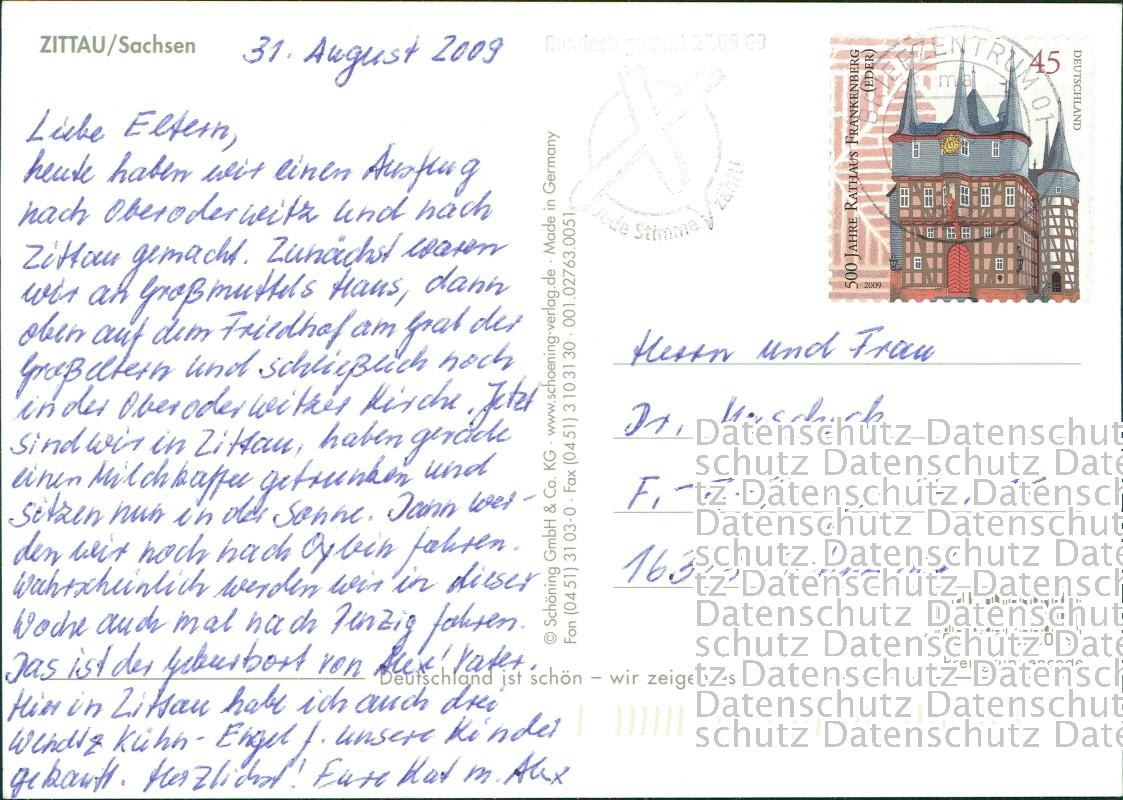 ZITTAU/Sachsen
31. August 2009
Liebe Eltern,
heute haben wir einen Ausflug
nach Oberoderwitz und nach
Zittau gemacht. Zunächst waren
wir an Großmuttels Haus, dann
oben auf dem Friedhof am Grab der
Großeltern und schließlich noch
in der Oberoderwitzer Kirche. Jetzt
sind wir in Zittau, haben gerade
einen Milchkaffee getrunken und
sitzen nun in der Sonne. Dann wer-
den wir noch nach Oybin fahren.
Wahrscheinlich werden wir in dieser
Woche auch mal nach Penzig fahren.
Das ist der Geburtsort von Alex' Vater.
Hier in Zittau habe ich auch drei
Wendt & Kühn-Engel f. unsere Kinder
gekauft. Herzlichst! Eure Kat m. Alex
© Schöning GmbH & Co. KG · www.schoening-verlag.de · Made in Germany
Fon (04 51) 31 03-0 · Fax (04 51) 3 10 31 30 · 001.02763.0051
Deutschland ist schön – wir zeigen es
Bundestagswahl 27.09.09
Jede Stimme zählt!
BRIEFZENTRUM 01
500 JAHRE RATHAUS FRANKENBERG
(EDER)
2009
45
DEUTSCHLAND
Herrn und Frau
Dr.
F.-
163
Datenschutz Datenschut
schutz Datenschutz Date
tz Datenschutz Datensch
Datenschutz Datenschut
schutz Datenschutz Date
tz Datenschutz Datensch
Datenschutz Datenschut
schutz Datenschutz Date
tz Datenschutz Datensch
Datenschutz Datenschut
schutz Datenschutz Date